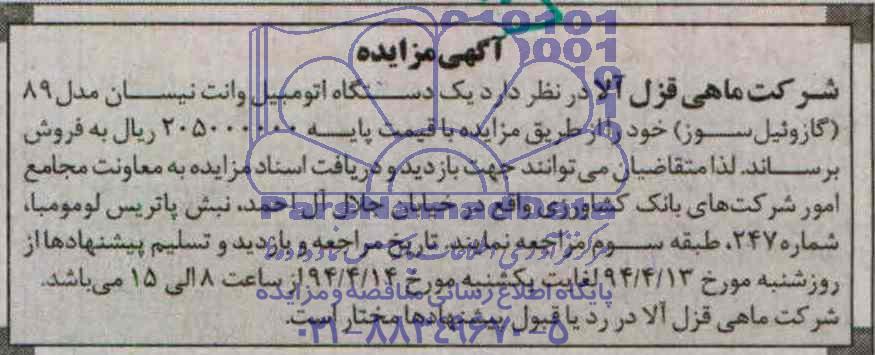 آگهی مزایده
شرکت ماهی قزل آلا در نظر دارد یک دستگاه اتومبیل وانت نیسان مدل ۸۹
(گازوئیل سوز) خود را از طریق مزایده با قیمت پایه ۲۰۵۰۰۰۰۰۰ ریال به فروش
برساند. لذا متقاضیان می توانند جهت بازدید و دریافت اسناد مزایده به معاونت مجامع
امور شرکت‌های بانک کشاورزی واقع در خیابان جلال آل احمد، نبش پاتریس لومومبا،
شماره ۲۴۷، طبقه سوم مراجعه نمایند. تاریخ مراجعه و بازدید و تسلیم پیشنهادها از
روز شنبه مورخ ۹۴/۴/۱۳ لغایت یکشنبه مورخ ۹۴/۴/۱۴ از ساعت ۸ الی ۱۵ می‌باشد.
شرکت ماهی قزل آلا در رد یا قبول پیشنهادها مختار است.
ParsNamadData
پایگاه اطلاع رسانی مناقصه و مزایده
۰۲۱-۸۸۳۴۹۶۷۰-۵